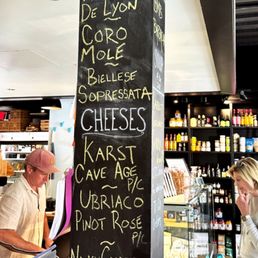 De Lyon
Coro
Mole
Biellese
Sopressata
CHEESES
Karst
Cave Age
P/C
~
Ubriaco
Pinot Rose
P/C
~